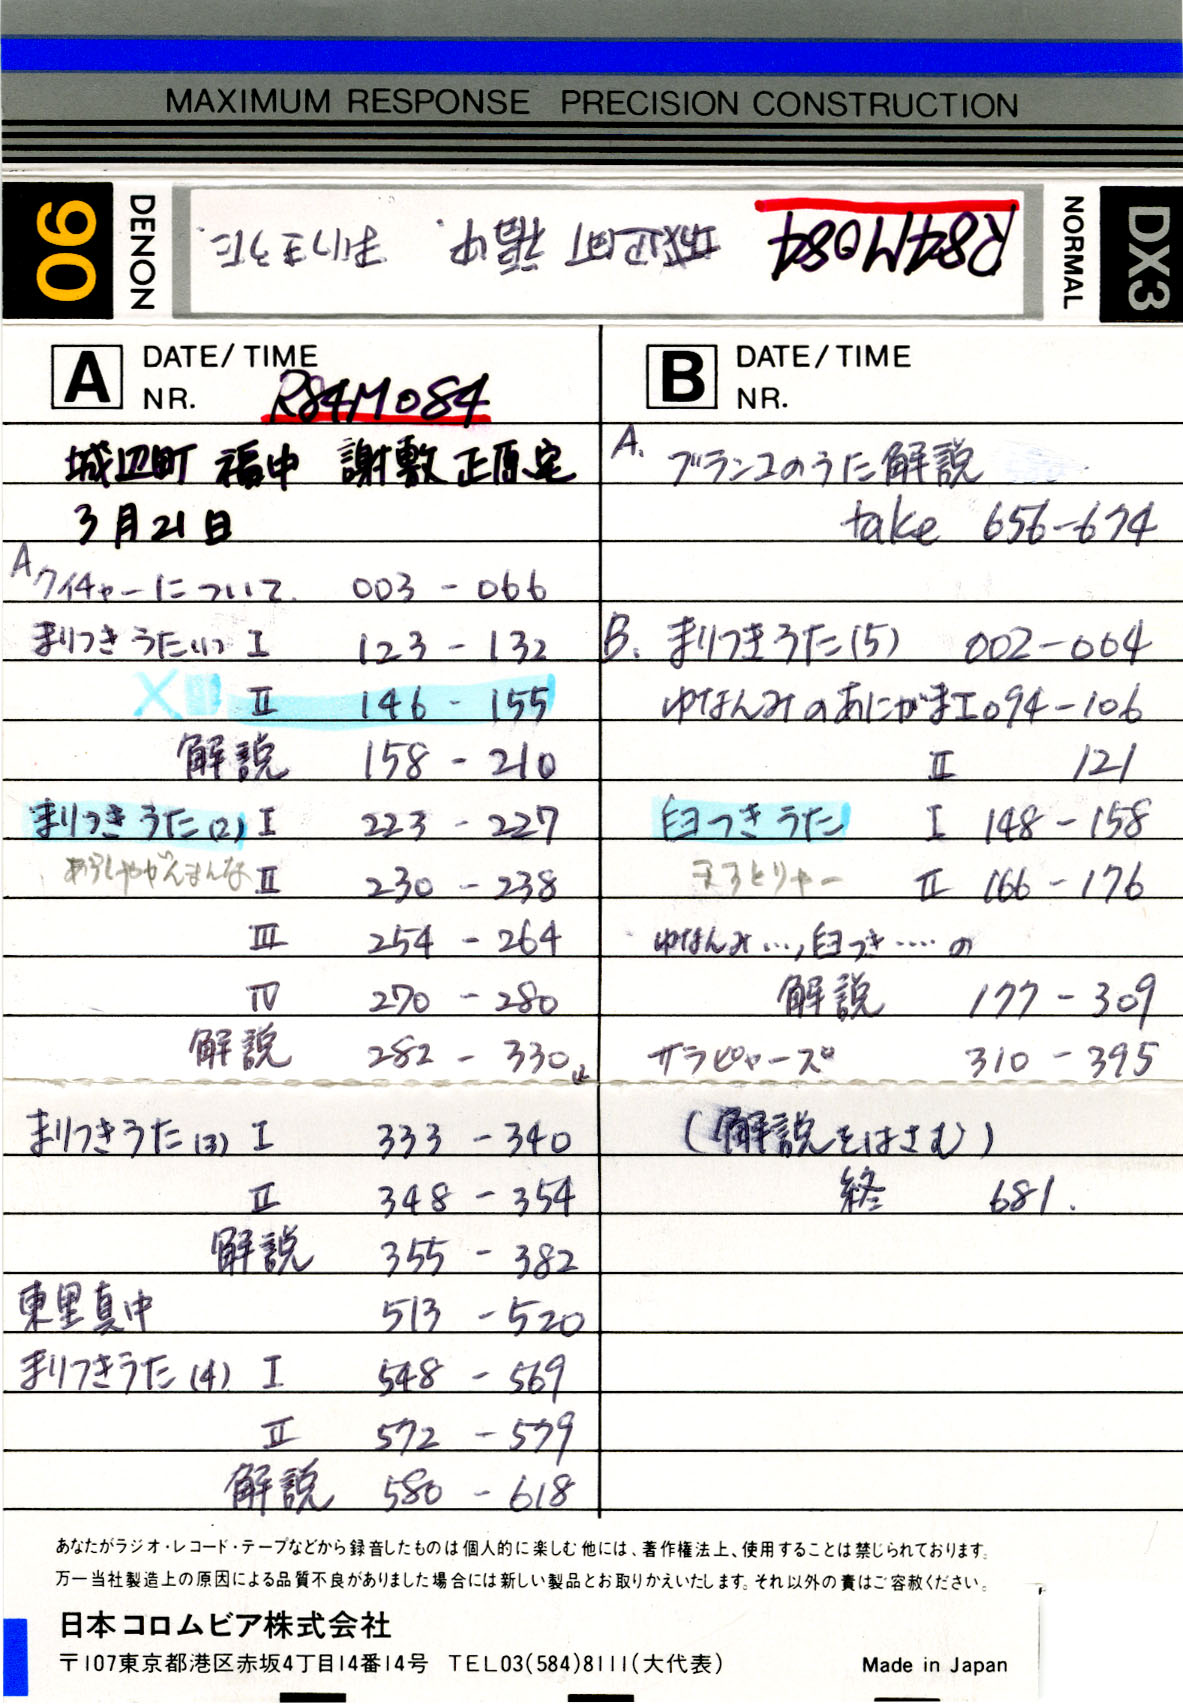 MAXIMUM RESPONSE PRECISION CONSTRUCTION
90 DENON R84M084 城辺町 福中. まりつきうた. NORMAL DX3
A DATE/TIME
NR. R84M084
城辺町 福中 謝敷正原宅
3月21日
A クイチャーについて. 003-066
まりつきうた(1) I 123-132
X II 146-155
解説 158-210
まりつきうた(2) I 223-227
あらしゃがんまんな II 230-238
III 254-264
IV 270-280
解説 282-330
まりつきうた(3) I 333-340
II 348-354
解説 355-382
東里真中 513-520
まりつきうた(4) I 548-569
II 572-579
解説 580-618
B DATE/TIME
NR.
A. ブランコのうた解説
take 656-674
B. まりつきうた(5) 002-064
ゆなんみのあにがま I 094-106
II 121
臼つきうた I 148-158
まうとりゃー II 166-176
ゆなんみ…,臼つき……の
解説 177-309
サラピャーズ 310-395
(解説をはさむ)
終 681.
あなたがラジオ・レコード・テープなどから録音したものは個人的に楽しむ他には、著作権法上、使用することは禁じられております。
万一当社製造上の原因による品質不良がありました場合には新しい製品とお取りかえいたします。それ以外の責はご容赦ください。
日本コロムビア株式会社
〒107東京都港区赤坂4丁目14番14号 TEL03(584)8111(大代表) Made in Japan